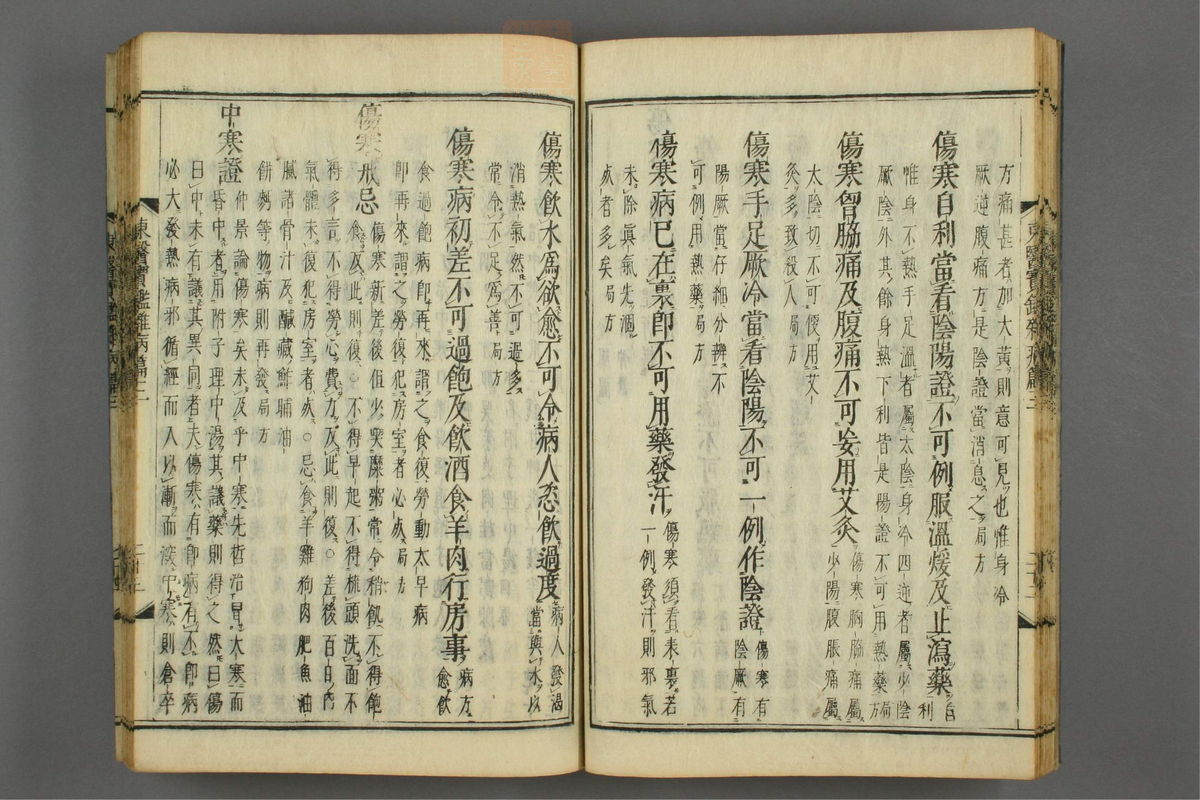 方痛甚者加大黃則意可見也惟身冷
厥逆腹痛方是陰證當消息之局方
傷寒自利當看陰陽證不可例服溫煖及止瀉藥自利
惟身不熱手足溫者屬太陰身冷四逆者屬少陰
厥陰外其餘身熱下利皆是陽證不可用熱藥局方
傷寒胷脇痛及腹痛不可妄用艾灸傷寒胸脇痛屬
少陽腹脹痛屬
太陰切不可便用艾
灸多致殺人局方
傷寒手足厥冷當看陰陽不可一例作陰證傷寒有
陰厥有
陽厥當仔細分辨不
可例用熱藥局方
傷寒病已在裏卽不可用藥發汗傷寒須看表裏若
一例發汗則邪氣
未除眞氣先涸
死者多矣局方
傷寒飲水爲欲愈不可令病人恣飲過度病人發渴
當與水以
消熱氣然不可過多
常令不足爲善局方
傷寒病初差不可過飽及飲酒食羊肉行房事病方
愈飲
食過飽病卽再來謂之食復勞動太早病
卽再來謂之勞復犯房室者必死局方
傷寒戒忌傷寒新差後但少喫糜粥常令稍飢不得飽
食反此則復○不得早起不得梳頭洗面不
得多言不得勞心費力反此則復○差後百日內
氣體未復犯房室者死○忌食羊雞狗肉肥魚油
膩諸骨汁及鹹藏鮓脯油
餠麪等物病則再發局方
中寒證仲景論傷寒矣未及乎中寒先哲治冒大寒而
昏中者用附子理中湯其議藥則得之然曰傷
曰中未有議其異同者夫傷寒有卽病有不卽病
必大發熱病邪循經而入以漸而深中寒則倉卒
東醫寶鑑雜病篇二